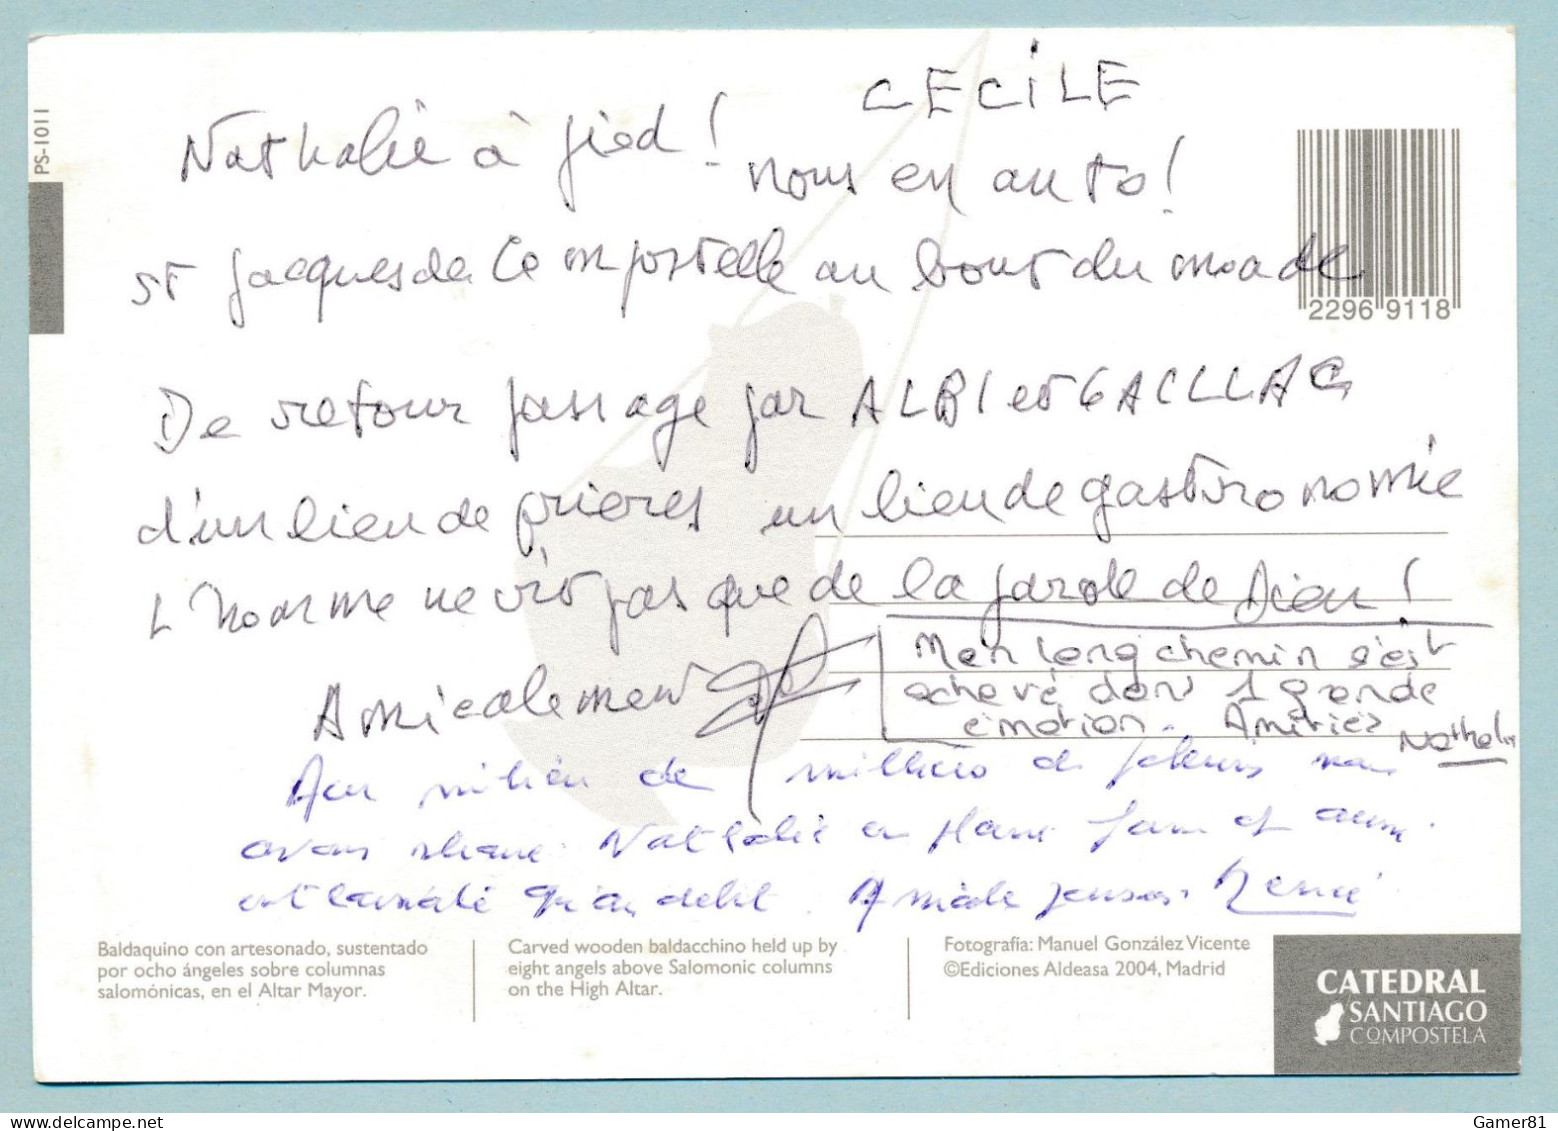 CECILE
Nathalie à pied !
nous en auto !
PS-1011
St Jacques de Compostelle au bout du monde
2296 9118
De retour passage par ALBI et GAILLAC
d'un lieu de prières un lieu de gastronomie
L'homme ne vit pas que de la parole de Dieu !
Amicalement
Mon long chemin s'est
achevé dans 1 grande
émotion. Amitiés Nathalie
Au milieu de milliers de pèlerins nous
avons Nathalie en pleine
Amicale
Baldaquino con artesonado, sustentado
por ocho ángeles sobre columnas
salomónicas, en el Altar Mayor.
Carved wooden baldacchino held up by
eight angels above Salomonic columns
on the High Altar.
Fotografía: Manuel González Vicente
©Ediciones Aldeasa 2004, Madrid
CATEDRAL
SANTIAGO
COMPOSTELA
Gamer81